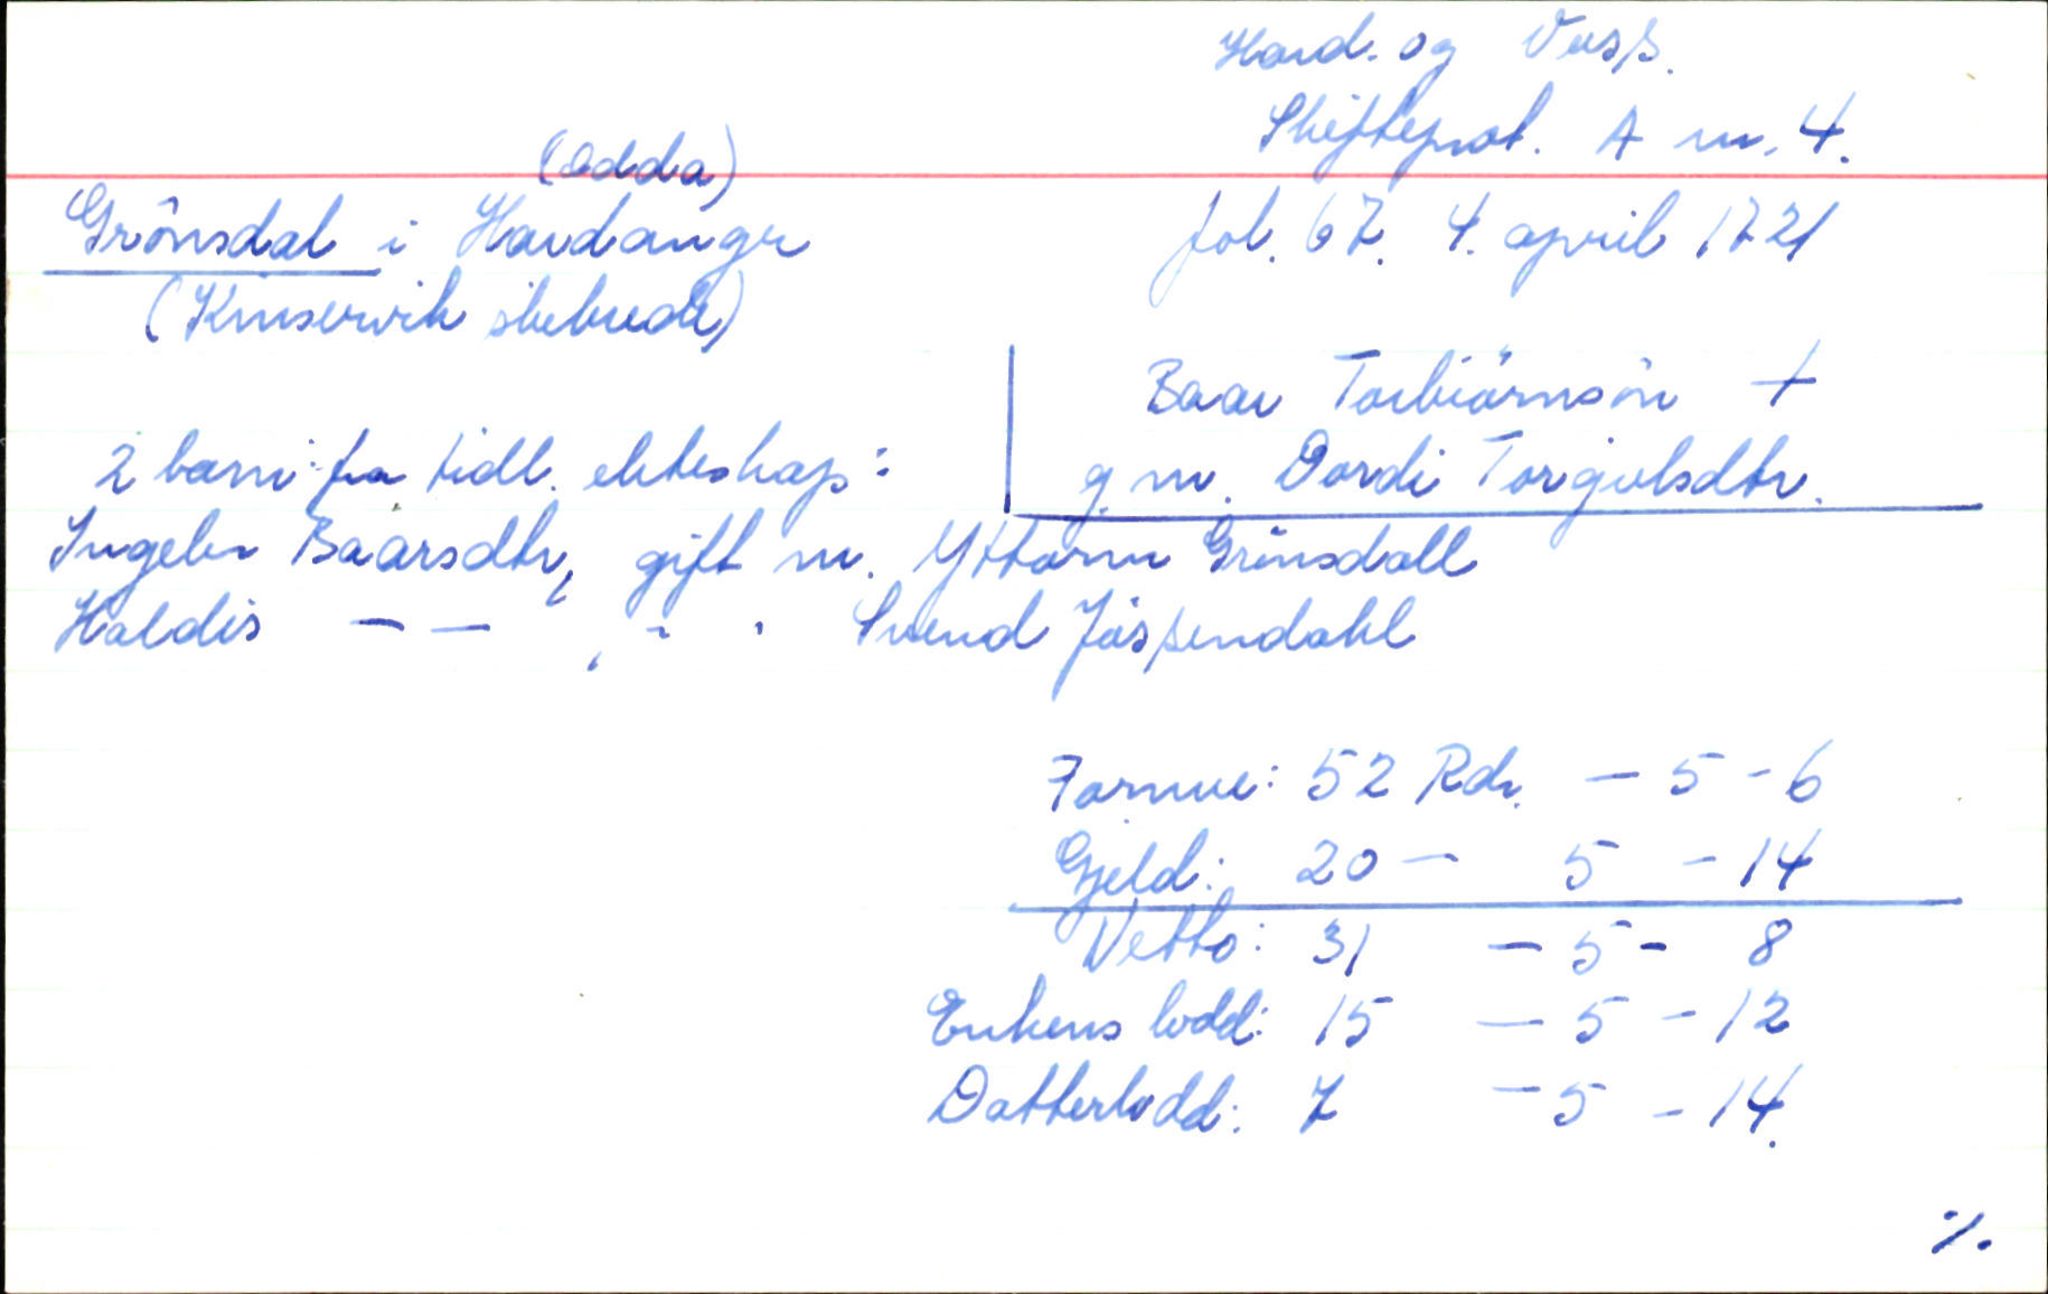 Hard. og Voss.
Skifteprot. A nr. 4.
(Odda)
Grönsdal i Hardanger
fol. 67. 4. april 1721
(Kinservik skibrede)
Baar Torbiörnsön +
g.m. Dordi Torgiulsdtr.
2 barn fra tidl. ekteskap:
Ingebr Baarsdtr, gift m. Yttorm Grönsdall
Haldis — — , - . Svend Jössendahl
Formue: 52 Rdr. - 5 - 6
Gjeld: 20 - 5 - 14
Netto: 31 - 5 - 8
Enkens lodd: 15 - 5 - 12
Datterlodd: 7 - 5 - 14.
%.